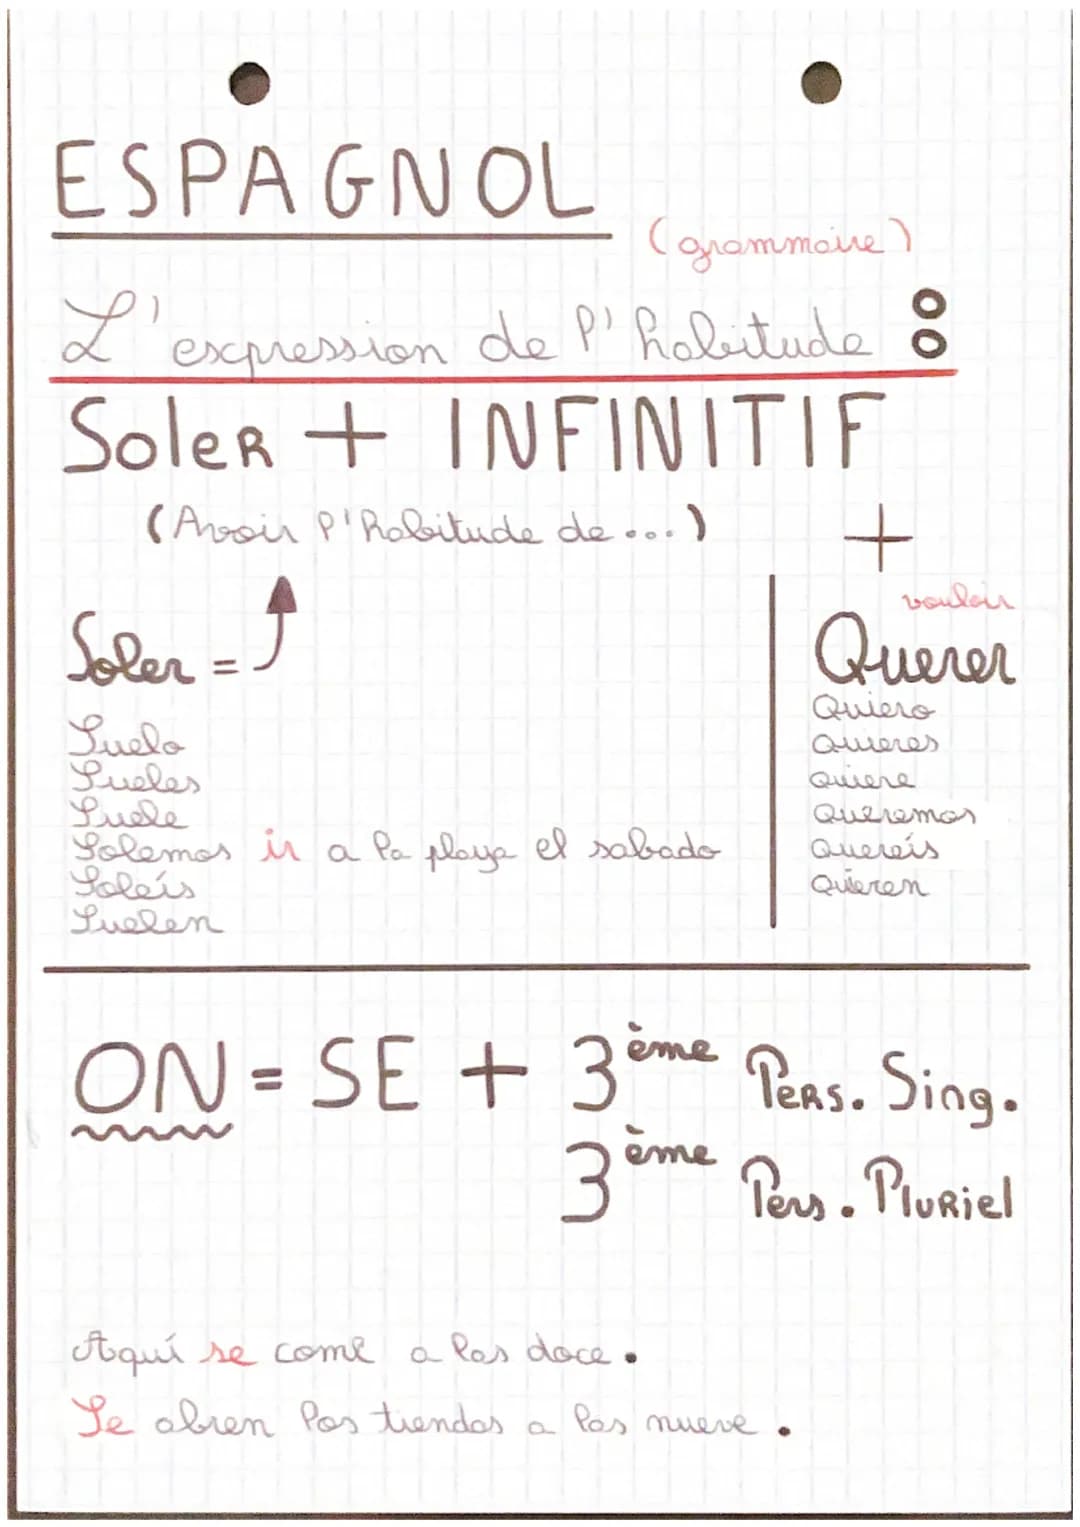 ESPAGNOL
(grammaire)
L'expression de l'habitude :
Soler + INFINITIF
(Avoir l'habitude de ...)
Soler =
Suelo
Sueles
Suele
Solemos ir a la playa el sabado
Soléis
Suelen
+
vouloir
Querer
Quiero
Quieres
Quiere
Queremos
Queréis
Quieren
ON = SE + 3ème Pers. Sing.
3ème Pers. Pluriel
Aquí se come a las doce.
Se abren las tiendas a las nueve.